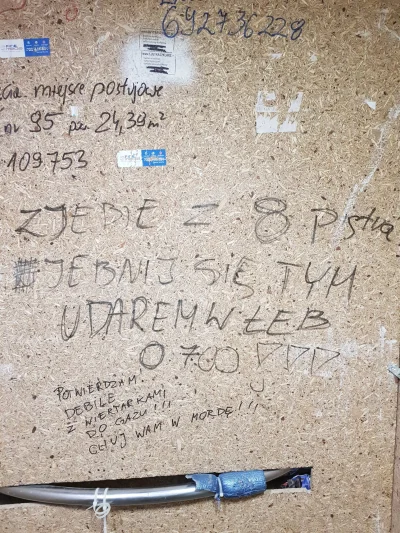 692736228
miejsce postojowe
nr 95 24,39 m²
109753
ZJEBIE Z 8 piętra
JEBNIJ SIĘ TYM
UDAREM W ŁEB
0 700
POTWIERDZAM.
DEBILE
Z WIERTARKAMI
DO GAZU!!!
CHUJ WAM W MORDĘ!!!